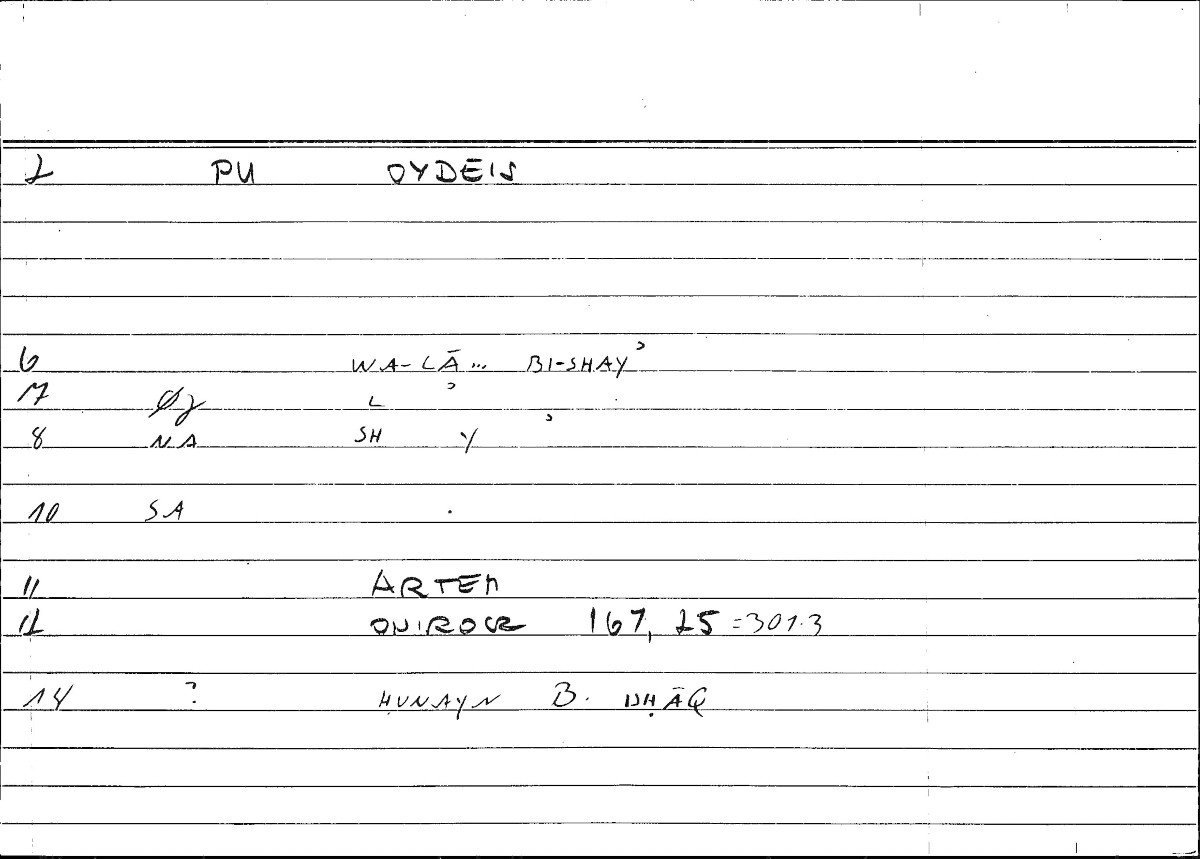 2 PU OYDEIS
6 WA-LĀ... BI-SHAYʾ
7 Øz Lʾ
8 NA SH Yʾ
10 SA .
11 ARTEM
12 ONIROCR 167, 25 =301.3
14 ? ḤUNAYN B. ISḤĀQ